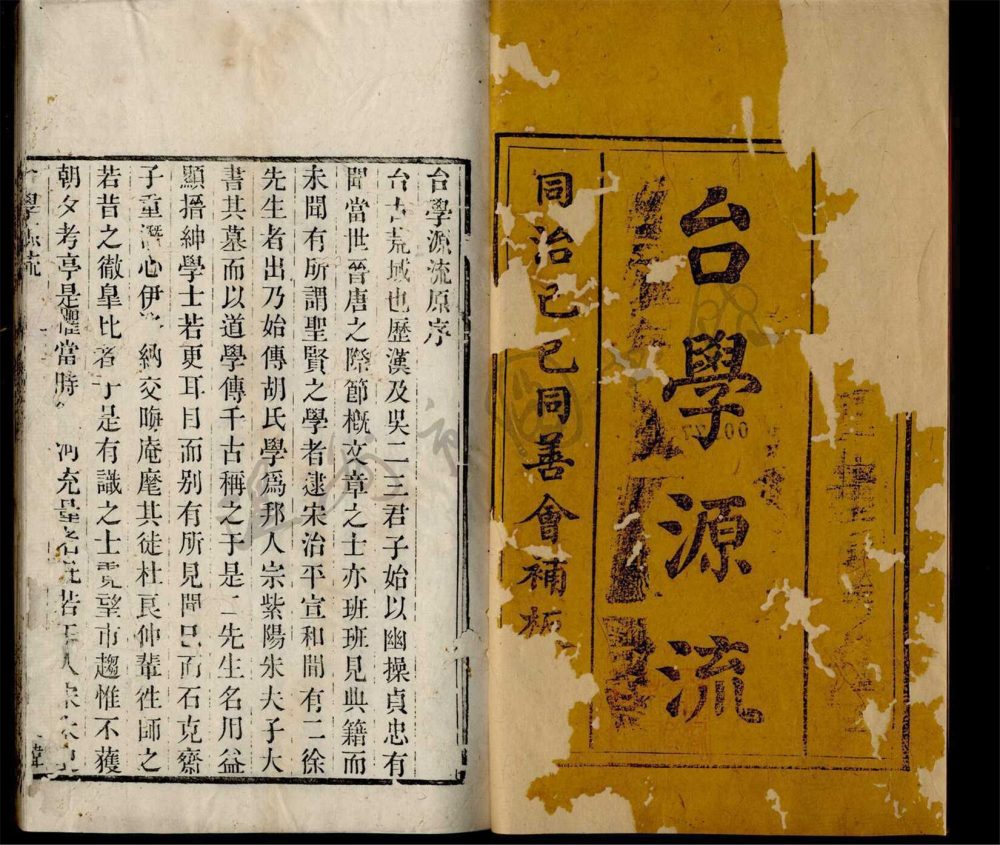 台學源流
同治己巳同善會補板
台學源流原序
台古荒域也歷漢及吳二三君子始以幽操貞忠有
聞當世晉唐之際節概文章之士亦班班見典籍而
未聞有所謂聖賢之學者逮宋治平宣和間有二徐
先生者出乃始傳胡氏學爲邦人宗紫陽朱夫子大
書其墓而以道學傳千古稱之于是二先生名用益
顯搢紳學士若更耳目而別有所見聞已而石克齋
子重潛心伊 納交晦庵麾其徒杜良仲輩徃師之
若昔之徹皐比者于是有識之士 望市趨惟不獲
朝夕考亭是懼當時